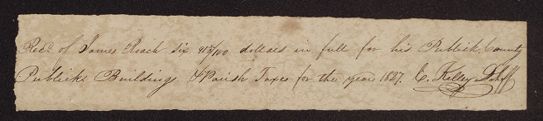 Recd. of James Roach Six 95/100 dollars in full for his Publick, County
Publick Buildings & Parish Taxes for the year 1827. C. Kelsey Shff